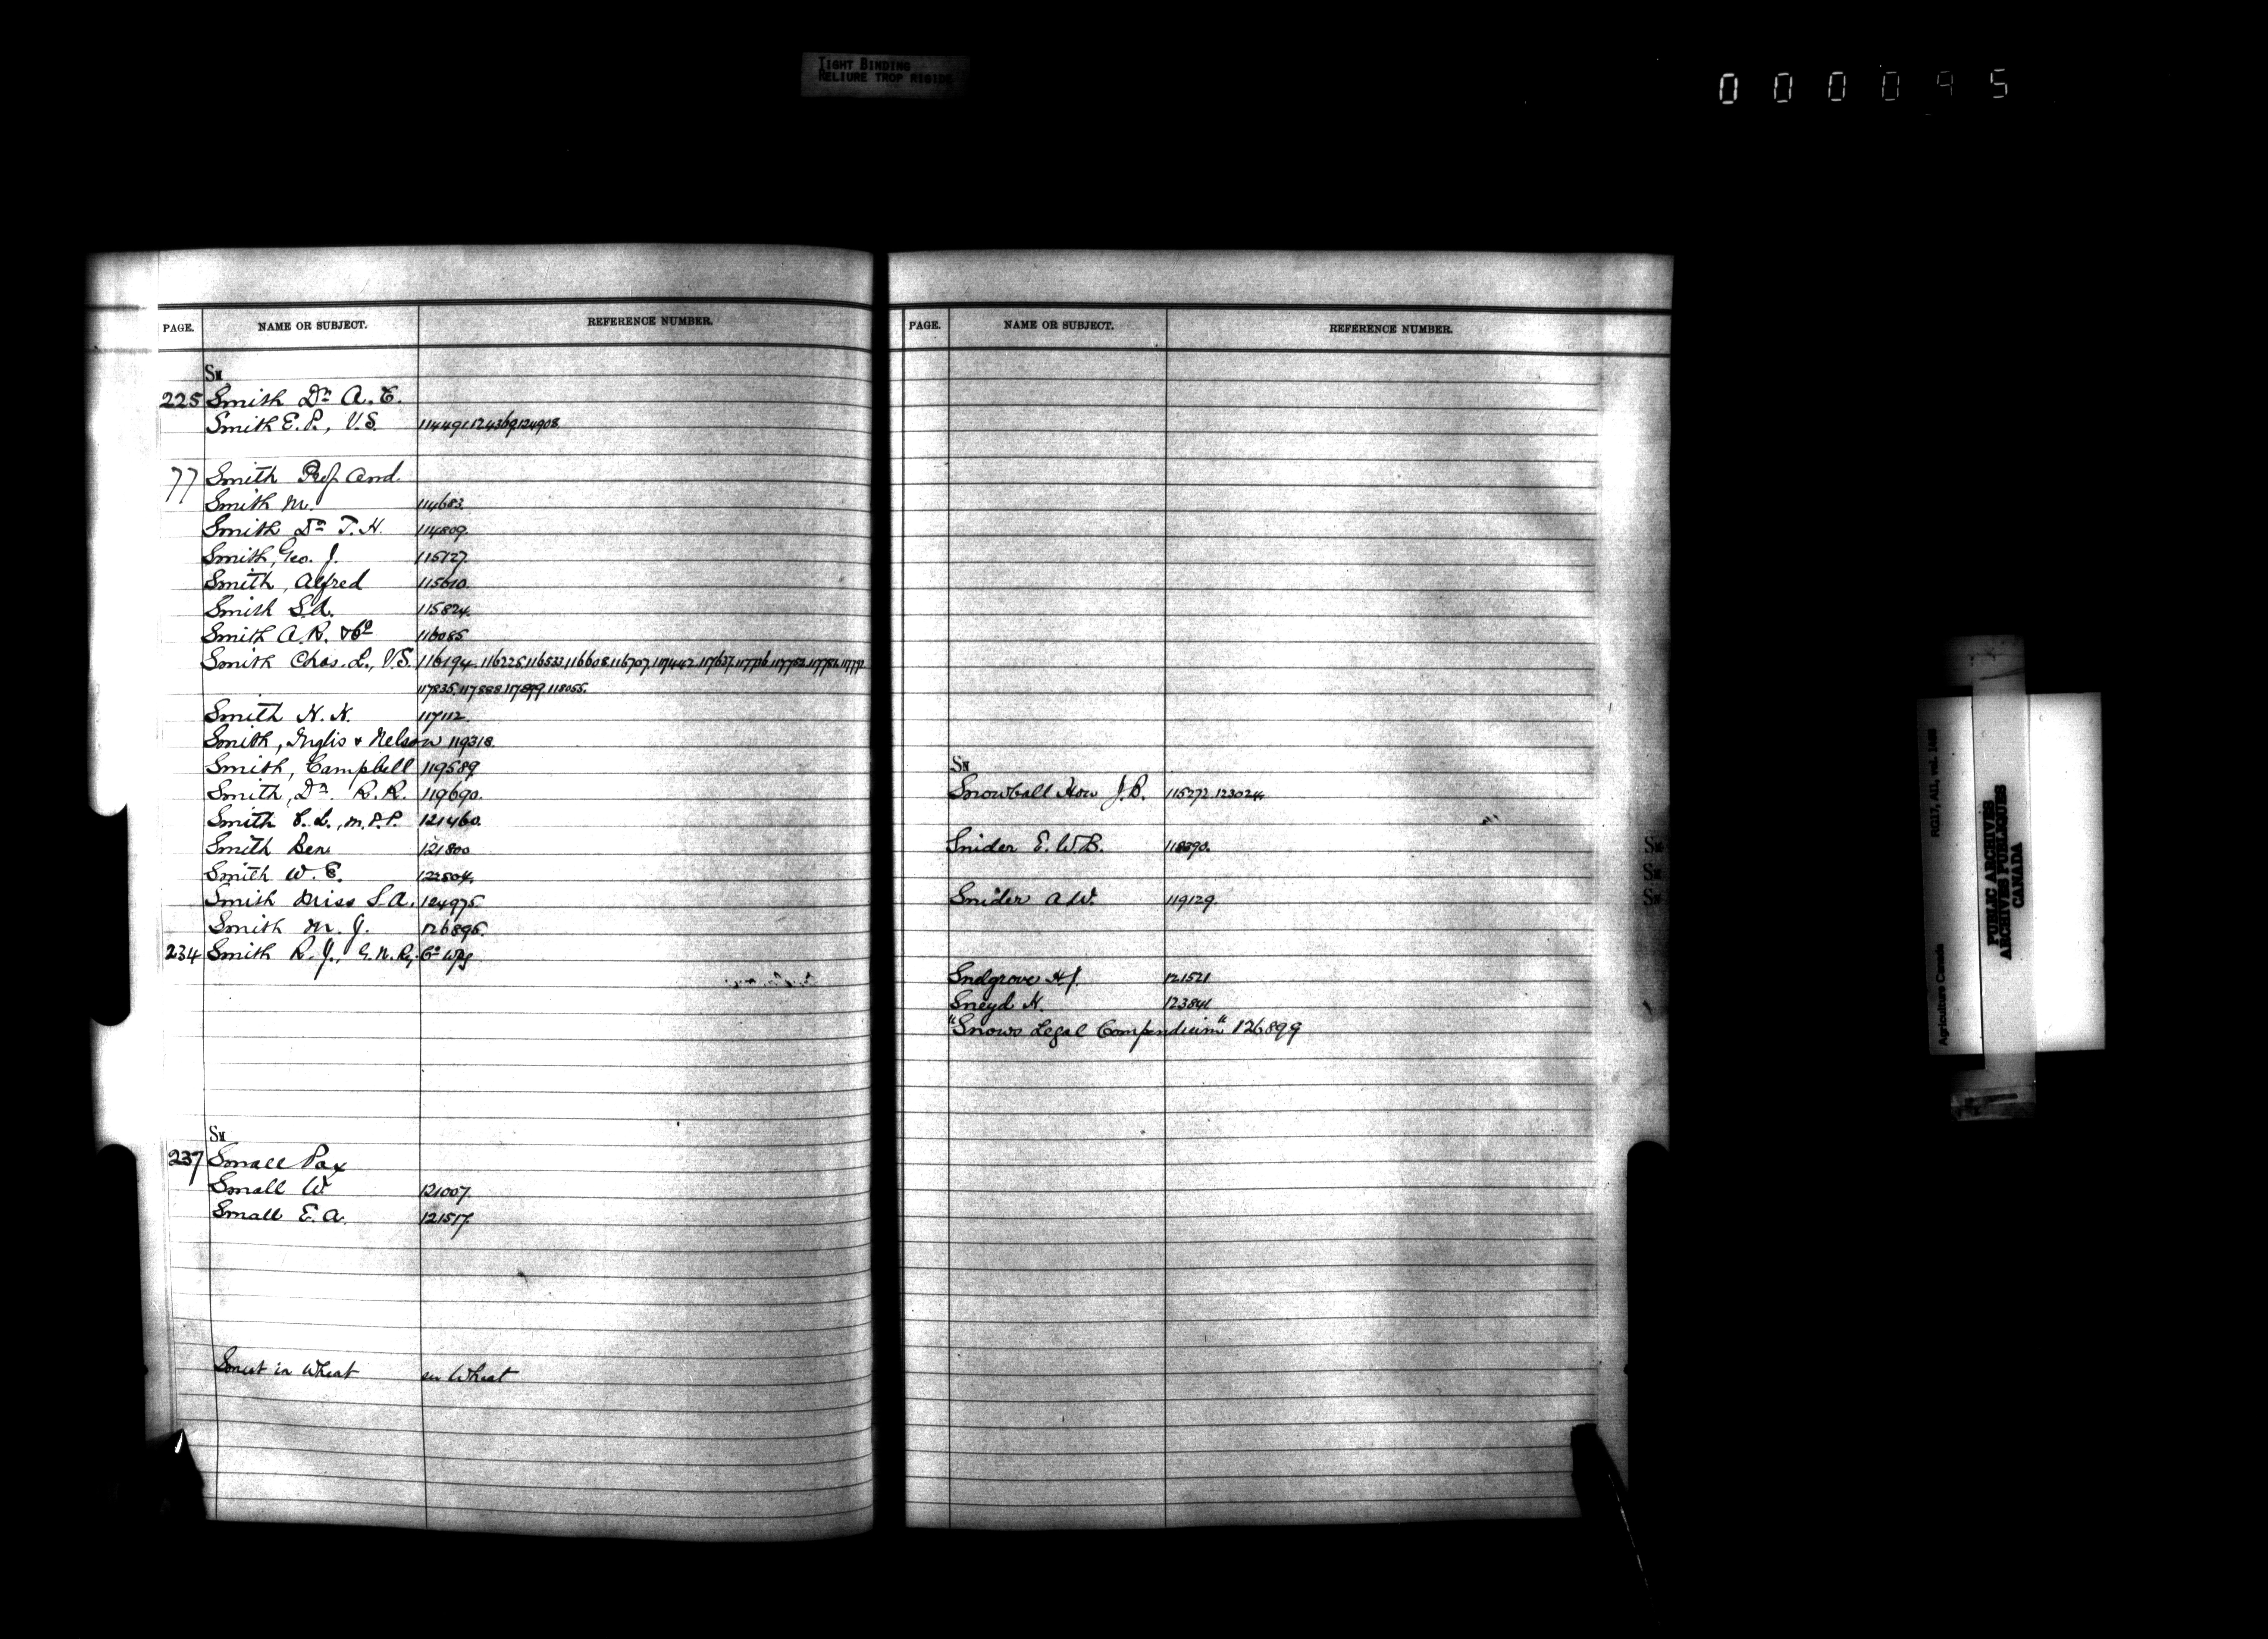 TIGHT BINDING
RELIURE TROP RIGIDE
000095
PAGE. NAME OR SUBJECT. REFERENCE NUMBER.
SM
225 Smith Dr A. E.
Smith E. P., V.S. 114491.124369.124908.
77 Smith Prof And.
Smith M. 114683.
Smith Dr T. H. 114809.
Smith, Geo. J. 115127.
Smith, Alfred 115610.
Smith S.A. 115824.
Smith A. R. & Co 116085
Smith Chas. L., V.S. 116194. 116225. 116532. 116608. 116707. 117442. 117637. 117716. 117752. 117781. 117791.
117835. 117888. 117899. 118055.
Smith H. H. 117112.
Smith, Inglis & Nelson 119318.
Smith, Campbell 119589
Smith, Dr R. R. 119690.
Smith S. L., M.P.P. 121460.
Smith Ben 121800
Smith W. E. 122504.
Smith Miss S. A. 124975
Smith M. J. 126896.
234 Smith R. J., G. N. Ry. Co Wpg
SM
237 Small Pox
Small W 121007.
Small E. A. 121517.
Smut in Wheat see Wheat
PAGE. NAME OR SUBJECT. REFERENCE NUMBER.
SN
Snowball Hon J. B. 115272. 123024.
Snider E. W. B. 118390.
Snider A. W. 119129.
Snelgrove H J. 121521
Sneyd H. 123841
"Snows Legal Compendium" 126899
RG17, AII, vol. 1688
Agriculture Canada
PUBLIC ARCHIVES
ARCHIVES PUBLIQUES
CANADA